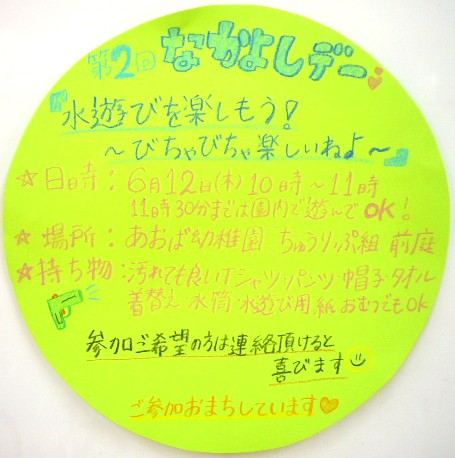 第2回 なかよしデー
『水遊びを楽しもう!
～びちゃびちゃ楽しいねよ～』
☆日時:6月12日(木)10時～11時
11時30分までは園内で遊んでOK!
☆場所:あおば幼稚園 ちゅうりっぷ組 前庭
☆持ち物:汚れても良いTシャツ・パンツ 帽子・タオル
着替え 水筒・水遊び用紙おむつでもOK
参加ご希望の方は連絡頂けると
喜びます
ご参加おまちしています